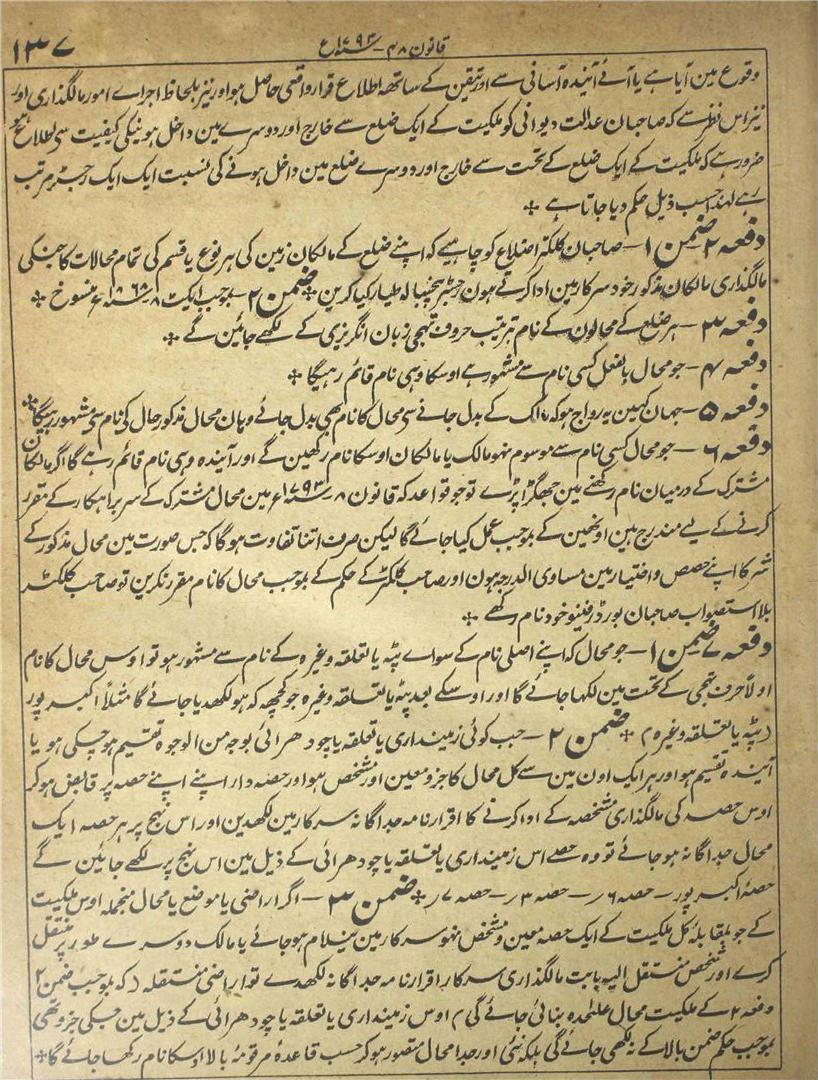 ۱۳۷
قانون ۴۸ - سنہ ۱۷۹۳ع
وقوع مین آیا ہے یا آئے آیندہ آسانی سے اور تیقن کے ساتھہ اطلاع قرار واقعی حاصل ہو اور نیز بلحاظ اجراے امور مالگذاری اور
نیز اس نظر سے کہ صاحبان عدالت دیوانی کو ملکیت کے ایک ضلع سے خارج اور دوسرے مین داخل ہونیکی کیفیت سی اطلاع ہو
ضرور ہے کہ ملکیت کے ایک ضلع کے تحت سے خارج اور دوسرے ضلع مین داخل ہونے کی نسبت ایک ایک رجسٹر مرتب
رہے لہذا حسب ذیل حکم دیا جاتا ہے ٭
دفعہ ۲ ضمن ۱ - صاحبان کلکٹر اضلاع کو چاہیے کہ اپنے ضلع کے مالکان زمین کی ہر نوع یا قسم کی تمام محالات کا جنکی
مالگذاری مالکان مذکور خود سرکار مین ادا کرتے ہون رجسٹر پنچسالہ طیار کیا کرین ٭ ضمن ۲ - بموجب ایکٹ ۸ سنہ ۱۸۶۸ ع منسوخ ٭
دفعہ ۳ - ہر ضلع کے محالون کے نام بترتیب حروف تہجی زبان انگریزی کے لکھے جائین گے ٭
دفعہ ۴ - جو محال بالفعل کسی نام سے مشہور ہے اوسکا وہی نام قائم رہیگا ٭
دفعہ ۵ - جہان کہین یہ رواج ہو کہ مالک کے بدل جانے سی محال کا نام بھی بدل جائے وہان محال مذکور حال کی نام سی مشہور رہیگا ٭
دفعہ ۶ - جو محال کسی نام سے موسوم نہو مالک یا مالکان اوسکا نام رکھین گے اور آیندہ وہی نام قائم رہے گا اگر مالکان
مشترک کے درمیان نام رکھنے مین جھگڑا پڑے تو جو قواعد کہ قانون ۸ سنہ ۱۷۹۳ ع مین محال مشترک کے سربراہکار کے مقرر
کرنے کے لیے مندرج ہین اونھین کے بموجب عمل کیا جائے گا لیکن صرف اتنا تفاوت ہوگا کہ جس صورت مین محال مذکور کے
شرکا اپنے حصص و اختیار مین مساوی الدرجہ ہون اور صاحب کلکٹر کے حکم کے بموجب محال کا نام مقرر نکرین تو صاحب کلکٹر
بلا استصواب صاحبان بورڈ رفینیو خود نام رکھے ٭
دفعہ ۷ ضمن ۱ - جو محال کہ اپنے اصلی نام کے سواے پٹہ یا تعلقہ وغیرہ کے نام سے مشہور ہو تو اوس محال کا نام
اولاً حرف تہجی کے تحت مین لکھا جائے گا اور اوسکے بعد پٹہ یا تعلقہ وغیرہ جو کچھہ کہ ہو لکھدیا جائے گا مثلاً اکبر پور
(پٹہ یا تعلقہ وغیرہ) ٭ ضمن ۲ - جب کوئی زمینداری یا تعلقہ یا چودھرائی بوجہ من الوجوہ تقسیم ہو چکی ہو یا
آیندہ تقسیم ہو اور ہر ایک اون مین سے کل محال کا جزو معین اور مشخص ہو اور حصہ دار اپنے اپنے حصہ پر قابض ہو کر
اوس حصہ کی مالگذاری مشخصہ کے ادا کرنے کا اقرار نامہ جداگانہ سرکار مین لکھدین اور اس نہج پر ہر حصہ ایک
محال جداگانہ ہو جائے تو وہ حصے اس زمینداری یا تعلقہ یا چودھرائی کے ذیل مین اس نہج پر لکھے جائین گے
حصہ اکبر پور - حصہ ۶ ر - حصہ ۳ ر - حصہ ۷ ر ٭ ضمن ۳ - اگر اراضی یا موضع یا محال منجملہ اوس ملکیت
کے جو بمقابلہ کل ملکیت کے ایک حصہ معین و مشخص نہو سرکار مین نیلام ہو جائے یا مالک دوسرے طور پر منتقل
کرے اور شخص منتقل الیہ بابت مالگذاری سرکار اقرار نامہ جداگانہ لکھدے تو اراضی منتقلہ (کہ بموجب ضمن ۲
دفعہ ۲ کے ملکیت محال علیٰحدہ بنائی جائے گی) اوس زمینداری یا تعلقہ یا چودھرائی کے ذیل مین جسکی جزو تھی
بموجب حکم ضمن بالا کے نہ لکھی جائے گی بلکہ نئی اور جدا محال متصور ہو کر حسب قاعدہ مرقومۂ بالا اوسکا نام رکھا جائے گا ٭